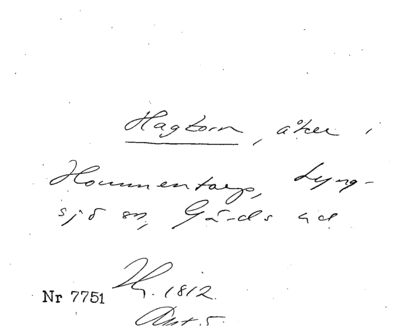 Hagtorn, åker i
Hommentorp, Lyng-
sjö sn, Gärds hd
Nr 7751 Th. 1812.
Akt 5.